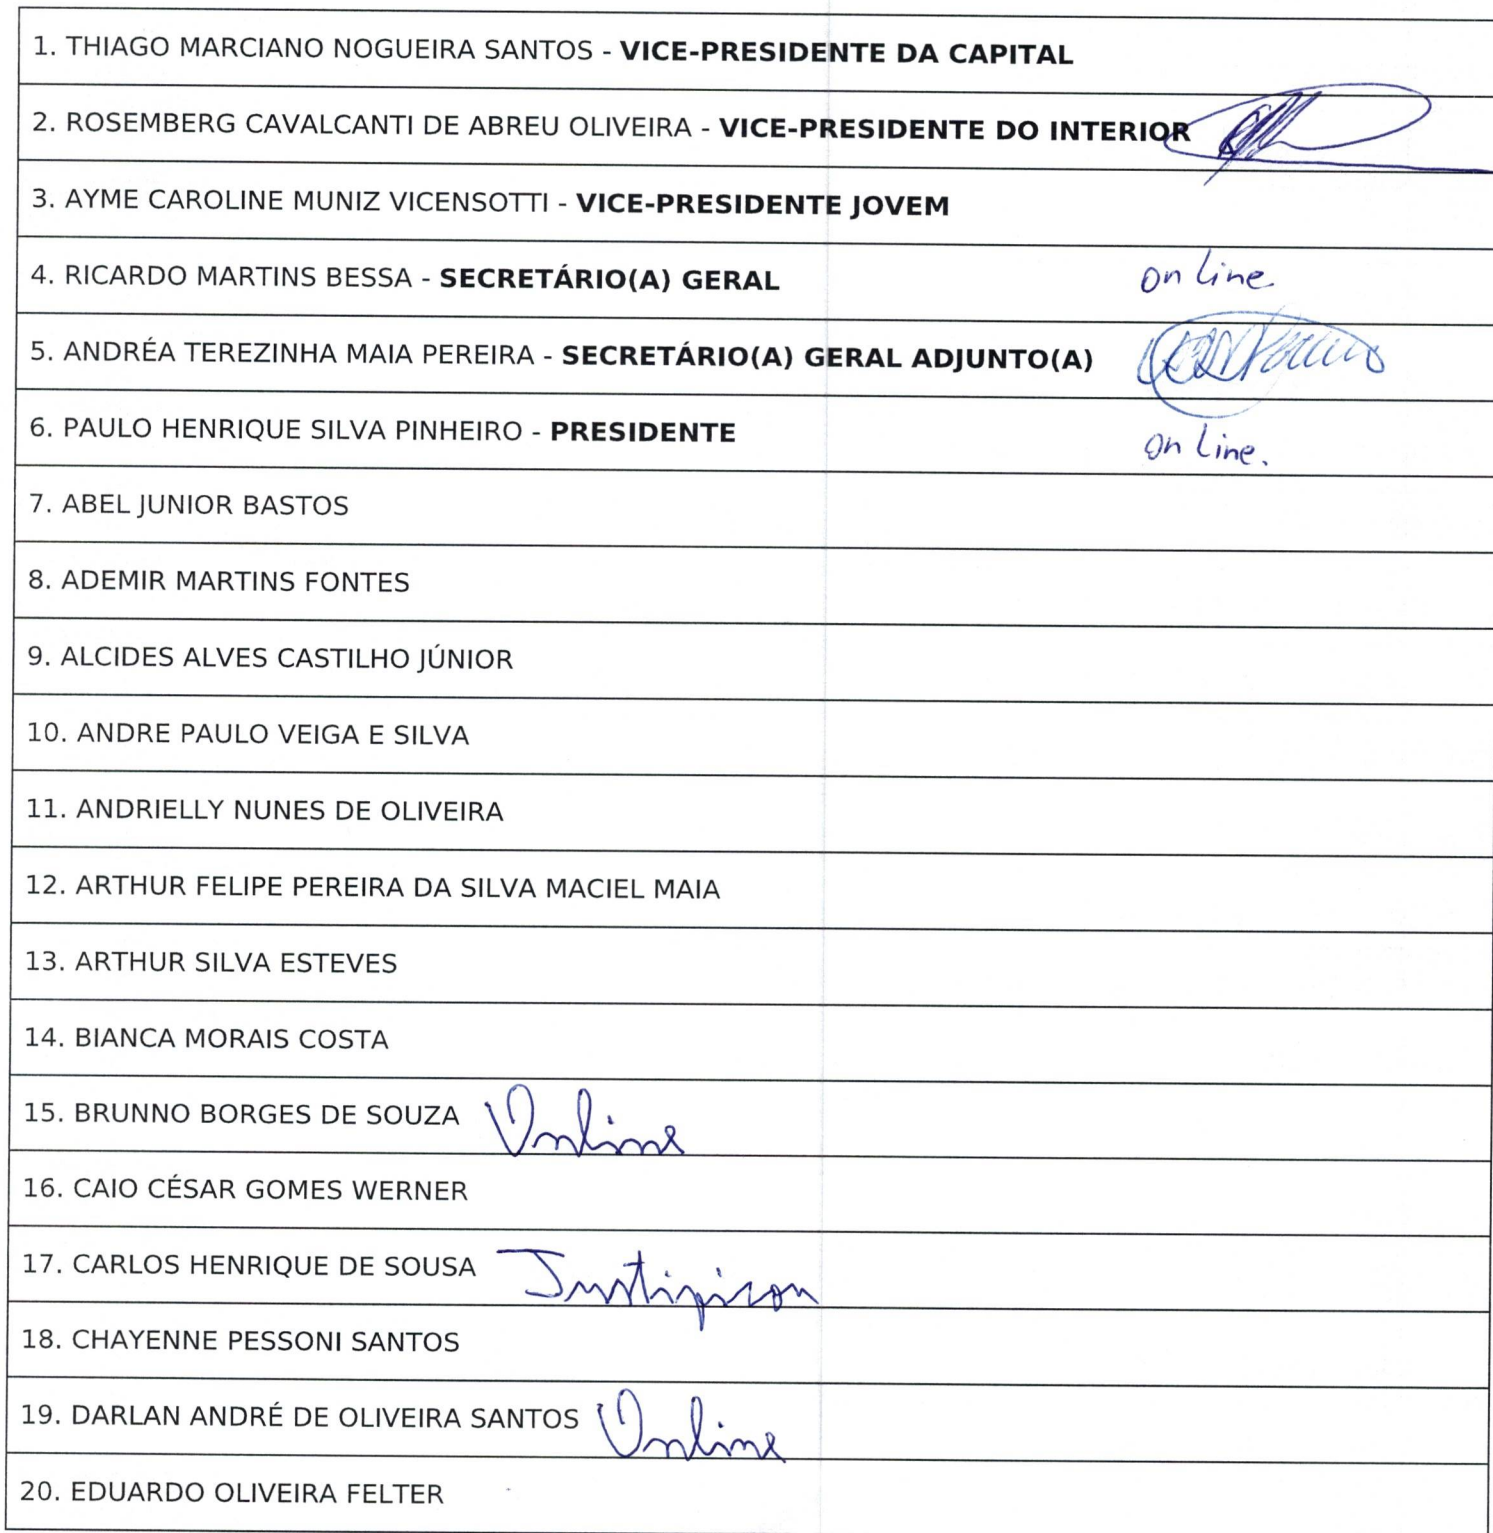 1. THIAGO MARCIANO NOGUEIRA SANTOS - VICE-PRESIDENTE DA CAPITAL
2. ROSEMBERG CAVALCANTI DE ABREU OLIVEIRA - VICE-PRESIDENTE DO INTERIOR
3. AYME CAROLINE MUNIZ VICENSOTTI - VICE-PRESIDENTE JOVEM
4. RICARDO MARTINS BESSA - SECRETÁRIO(A) GERAL on line
5. ANDRÉA TEREZINHA MAIA PEREIRA - SECRETÁRIO(A) GERAL ADJUNTO(A)
6. PAULO HENRIQUE SILVA PINHEIRO - PRESIDENTE on line.
7. ABEL JUNIOR BASTOS
8. ADEMIR MARTINS FONTES
9. ALCIDES ALVES CASTILHO JÚNIOR
10. ANDRE PAULO VEIGA E SILVA
11. ANDRIELLY NUNES DE OLIVEIRA
12. ARTHUR FELIPE PEREIRA DA SILVA MACIEL MAIA
13. ARTHUR SILVA ESTEVES
14. BIANCA MORAIS COSTA
15. BRUNNO BORGES DE SOUZA Online
16. CAIO CÉSAR GOMES WERNER
17. CARLOS HENRIQUE DE SOUSA Justificou
18. CHAYENNE PESSONI SANTOS
19. DARLAN ANDRÉ DE OLIVEIRA SANTOS Online
20. EDUARDO OLIVEIRA FELTER